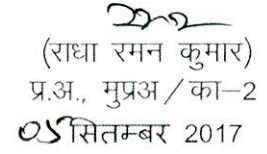 (राधा रमन कुमार)
प्र.अ., मुप्रअ / का–2
05 सितम्बर 2017